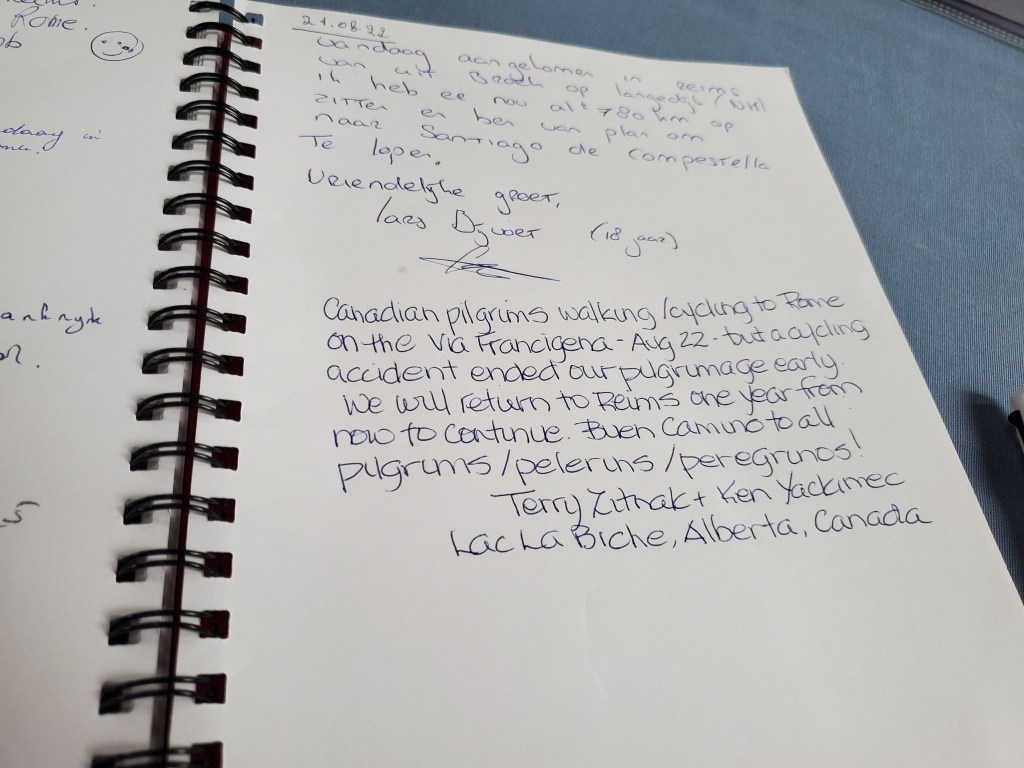 Rome.
daag in
ankryk
5
21.08.22
Vandaag aangekomen in Reims
van uit Broek op Langedijk (NH)
ik heb ee nou al ± 780 km op
zitten en ben van plan om
naar Santiago de Compostella
Te lopen.
Vriendelijke groet,
Lars (18 jaar)
Canadian pilgrims walking/cycling to Rome
on the Via Francigena - Aug 22 - but a cycling
accident ended our pilgrimage early.
We will return to Reims one year from
now to continue. Buen Camino to all
pilgrims/pelerins/peregrinos!
Terry Zitnak + Ken Yackimec
Lac La Biche, Alberta, Canada